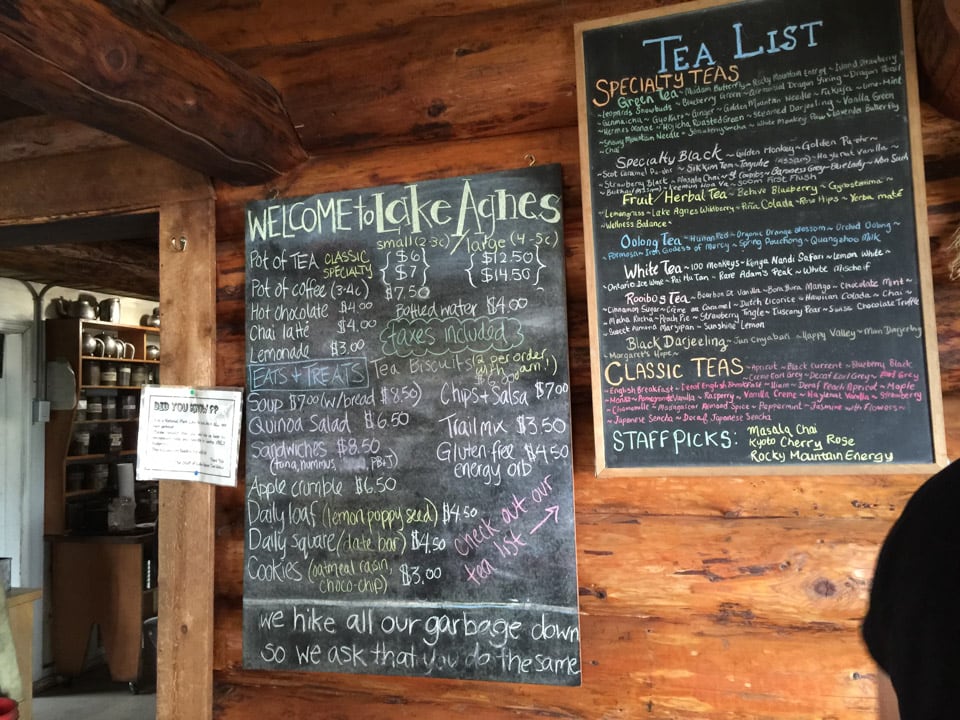 WELCOME to Lake Agnes
small (2-3c) / large (4-5c)
Pot of TEA CLASSIC {$6} {$12.50}
SPECIALTY {$7} {$14.50}
Pot of coffee (3-4c) $7.50
Hot chocolate $4.00 Bottled water $4.00
Chai latté $4.00 taxes included
Lemonade $3.00
EATS + TREATS Tea Biscuits (2 per order, with jam!)
Soup $7.00 (w/bread $8.50) Chips + Salsa $7.00
Quinoa Salad $6.50 Trail mix $3.50
Sandwiches $8.50 Gluten free $4.50
(tuna, hummus, PB+J) energy orb
Apple crumble $6.50
Daily loaf (lemon poppy seed) $4.50
Daily square (date bar) $4.50
Cookies (oatmeal raisin, $3.00
choco-chip)
check out our
tea list →
we hike all our garbage down
so we ask that you do the same
DID YOU KNOW??
TEA LIST
SPECIALTY TEAS
Green Tea ~ Madam Butterfly ~ Rocky Mountain Energy ~ Island Strawberry
~ Leopards Snowbuds ~ Blueberry Green ~ Ceremonial Dragon Yixing ~ Dragon Pearl
~ Genmaicha ~ Gyokuro ~ Ginger ~ Golden Mountain Needle ~ Fukuja ~ Lime-Mint
~ Hermes Orange ~ Hojicha Roasted Green ~ Steamed Darjeeling ~ Vanilla Green
~ Snowy Mountain Needle ~ Strawberry Sencha ~ White Monkey Paw ~ Lavender Butterfly
~ Chai
Specialty Black ~ Golden Monkey ~ Golden Pu-erh ~
~ Scot Caramel Pu-erh ~ Sikkim Tea ~ (Assam) ~ Hazelnut Vanilla ~
Strawberry Black ~ Masala Chai ~ St. Coombs ~ Baroness Grey ~ Blue Lady ~
~ Keemun Hao Ya ~ Soom First Flush
Fruit / Herbal Tea ~ Beehive Blueberry ~ Gynostemma ~
~ Lemongrass ~ Lake Agnes Wildberry ~ Piña Colada ~ Rose Hips ~ Yerba maté
~ Wellness Balance ~
Oolong Tea ~ Hunan Red ~ Organic Orange Blossom ~ Orchid Oolong ~
~ Formosa ~ Iron Goddess of Mercy ~ Spring Pouchong ~ Quangzhou Milk
White Tea ~ 100 Monkeys ~ Kenya Nandi Safari ~ Lemon White ~
~ Ontario Ice Wine ~ Pai Mu Tan ~ Rare Adam's Peak ~ White Mischief
Rooibos Tea ~ Bourbon St Vanilla ~ Bora Bora Mango ~ Chocolate Mint ~
Cinnamon Sugar ~ Crème au Caramel ~ Dutch Licorice ~ Hawaiian Colada ~ Chai ~
Mocha Rocha ~ Peach Pie ~ Strawberry Tangle ~ Tuscany Pear ~ Swiss Chocolate Truffle
~ Sweet Amara Marzipan ~ Sunshine Lemon
Black Darjeeling ~ Jun Chiyabari ~ Happy Valley ~ Main Darjeeling
~ Margaret's Hope ~
CLASSIC TEAS ~ Apricot ~ Black Currant ~ Blueberry Black
~ Creme Earl Grey ~ Decaf Earl Grey ~ Earl Grey
~ English Breakfast ~ Decaf English Breakfast ~ Decaf Peach Apricot ~ Maple
~ Mango ~ Pomegranate Vanilla ~ Raspberry ~ Vanilla Creme ~ Hazelnut Vanilla ~ Strawberry
~ Chamomille ~ Madagascar Almond Spice ~ Peppermint ~ Jasmine with Flowers ~
~ Japanese Sencha ~ Decaf Japanese Sencha
STAFF PICKS: Masala Chai
Kyoto Cherry Rose
Rocky Mountain Energy